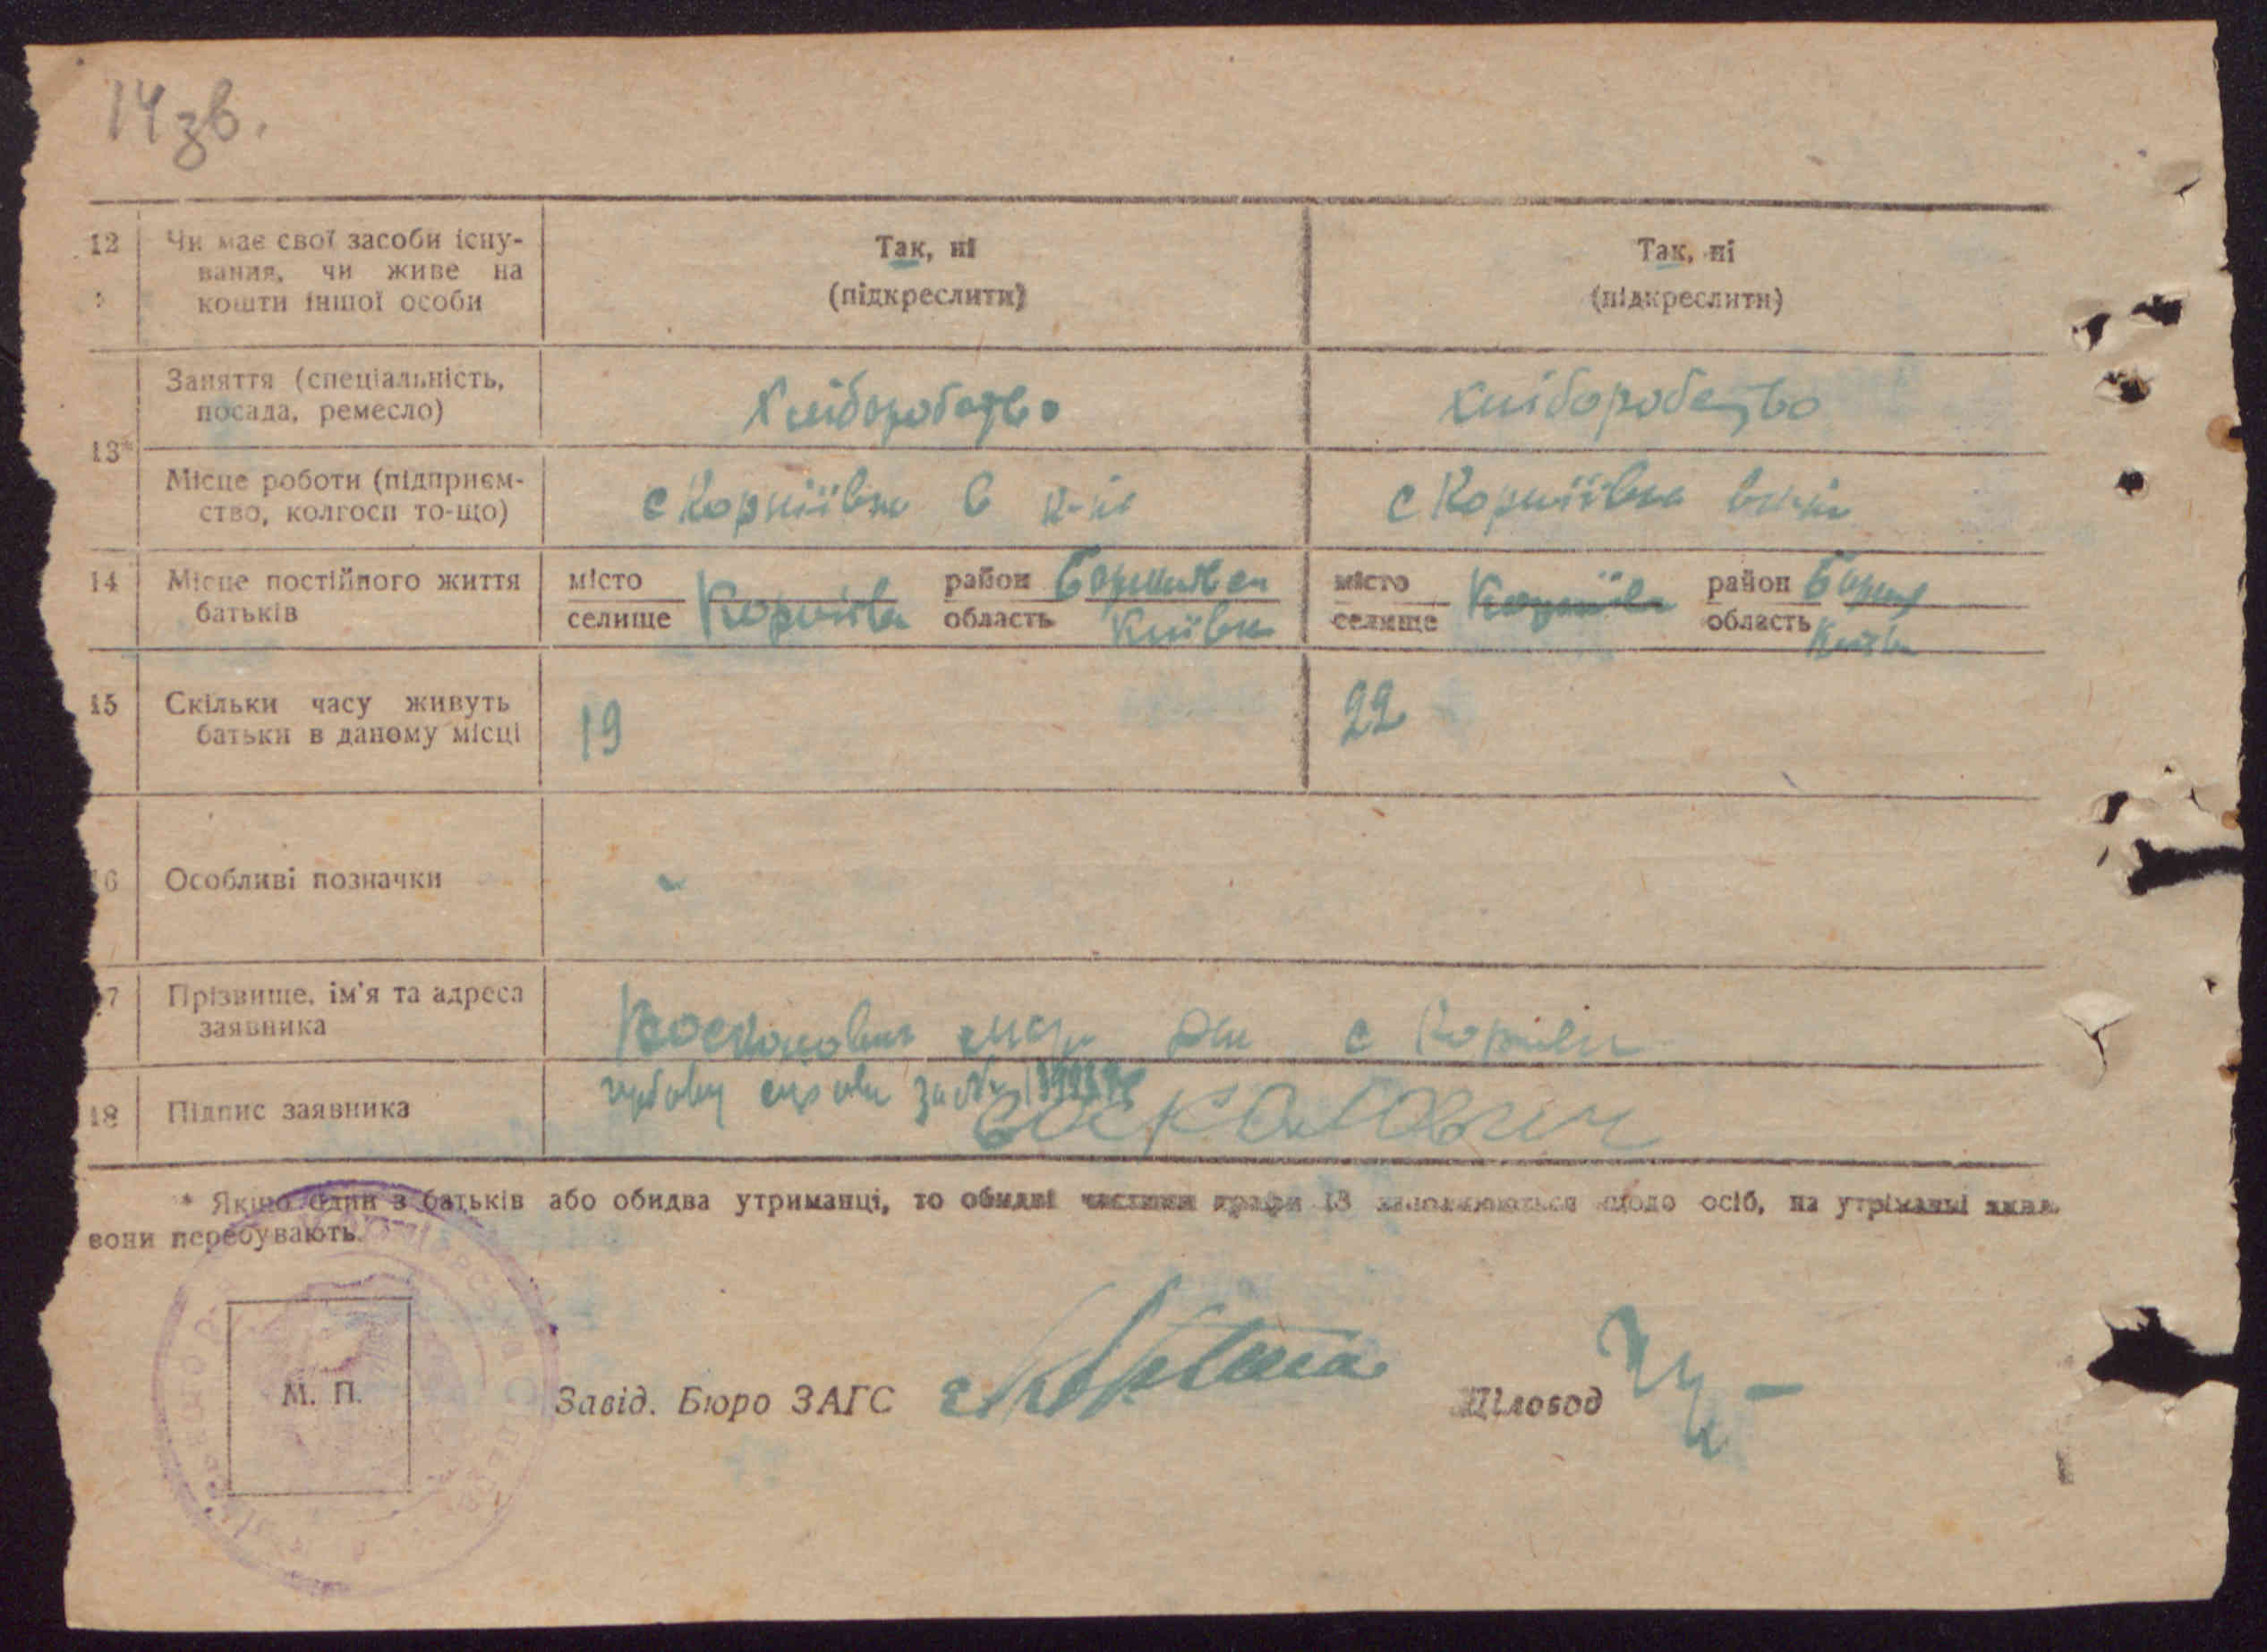 14 зв.
12 Чи має свої засоби існу-
вання, чи живе на
кошти іншої особи
Так, ні
(підкреслити)
Так, ні
(підкреслити)
13*
Заняття (спеціальність,
посада, ремесло)
Хліборобство
Хліборобство
Місце роботи (підприєм-
ство, колгосп то-що)
с Корніївка в к-ні
с Корніївка
14 Місце постійного життя
батьків
місто
селище
район
область
місто
селище
район
область
15 Скільки часу живуть
батьки в даному місці
19
22
6 Особливі позначки
7 Прізвище, ім'я та адреса
заявника
с
18 Підпис заявника
* Якщо один з батьків або обидва утриманці, то обидві частини графи 13 заповнюються щодо осіб, на утриманні яких
вони перебувають.
М. П.
Завід. Бюро ЗАГС
Діловод